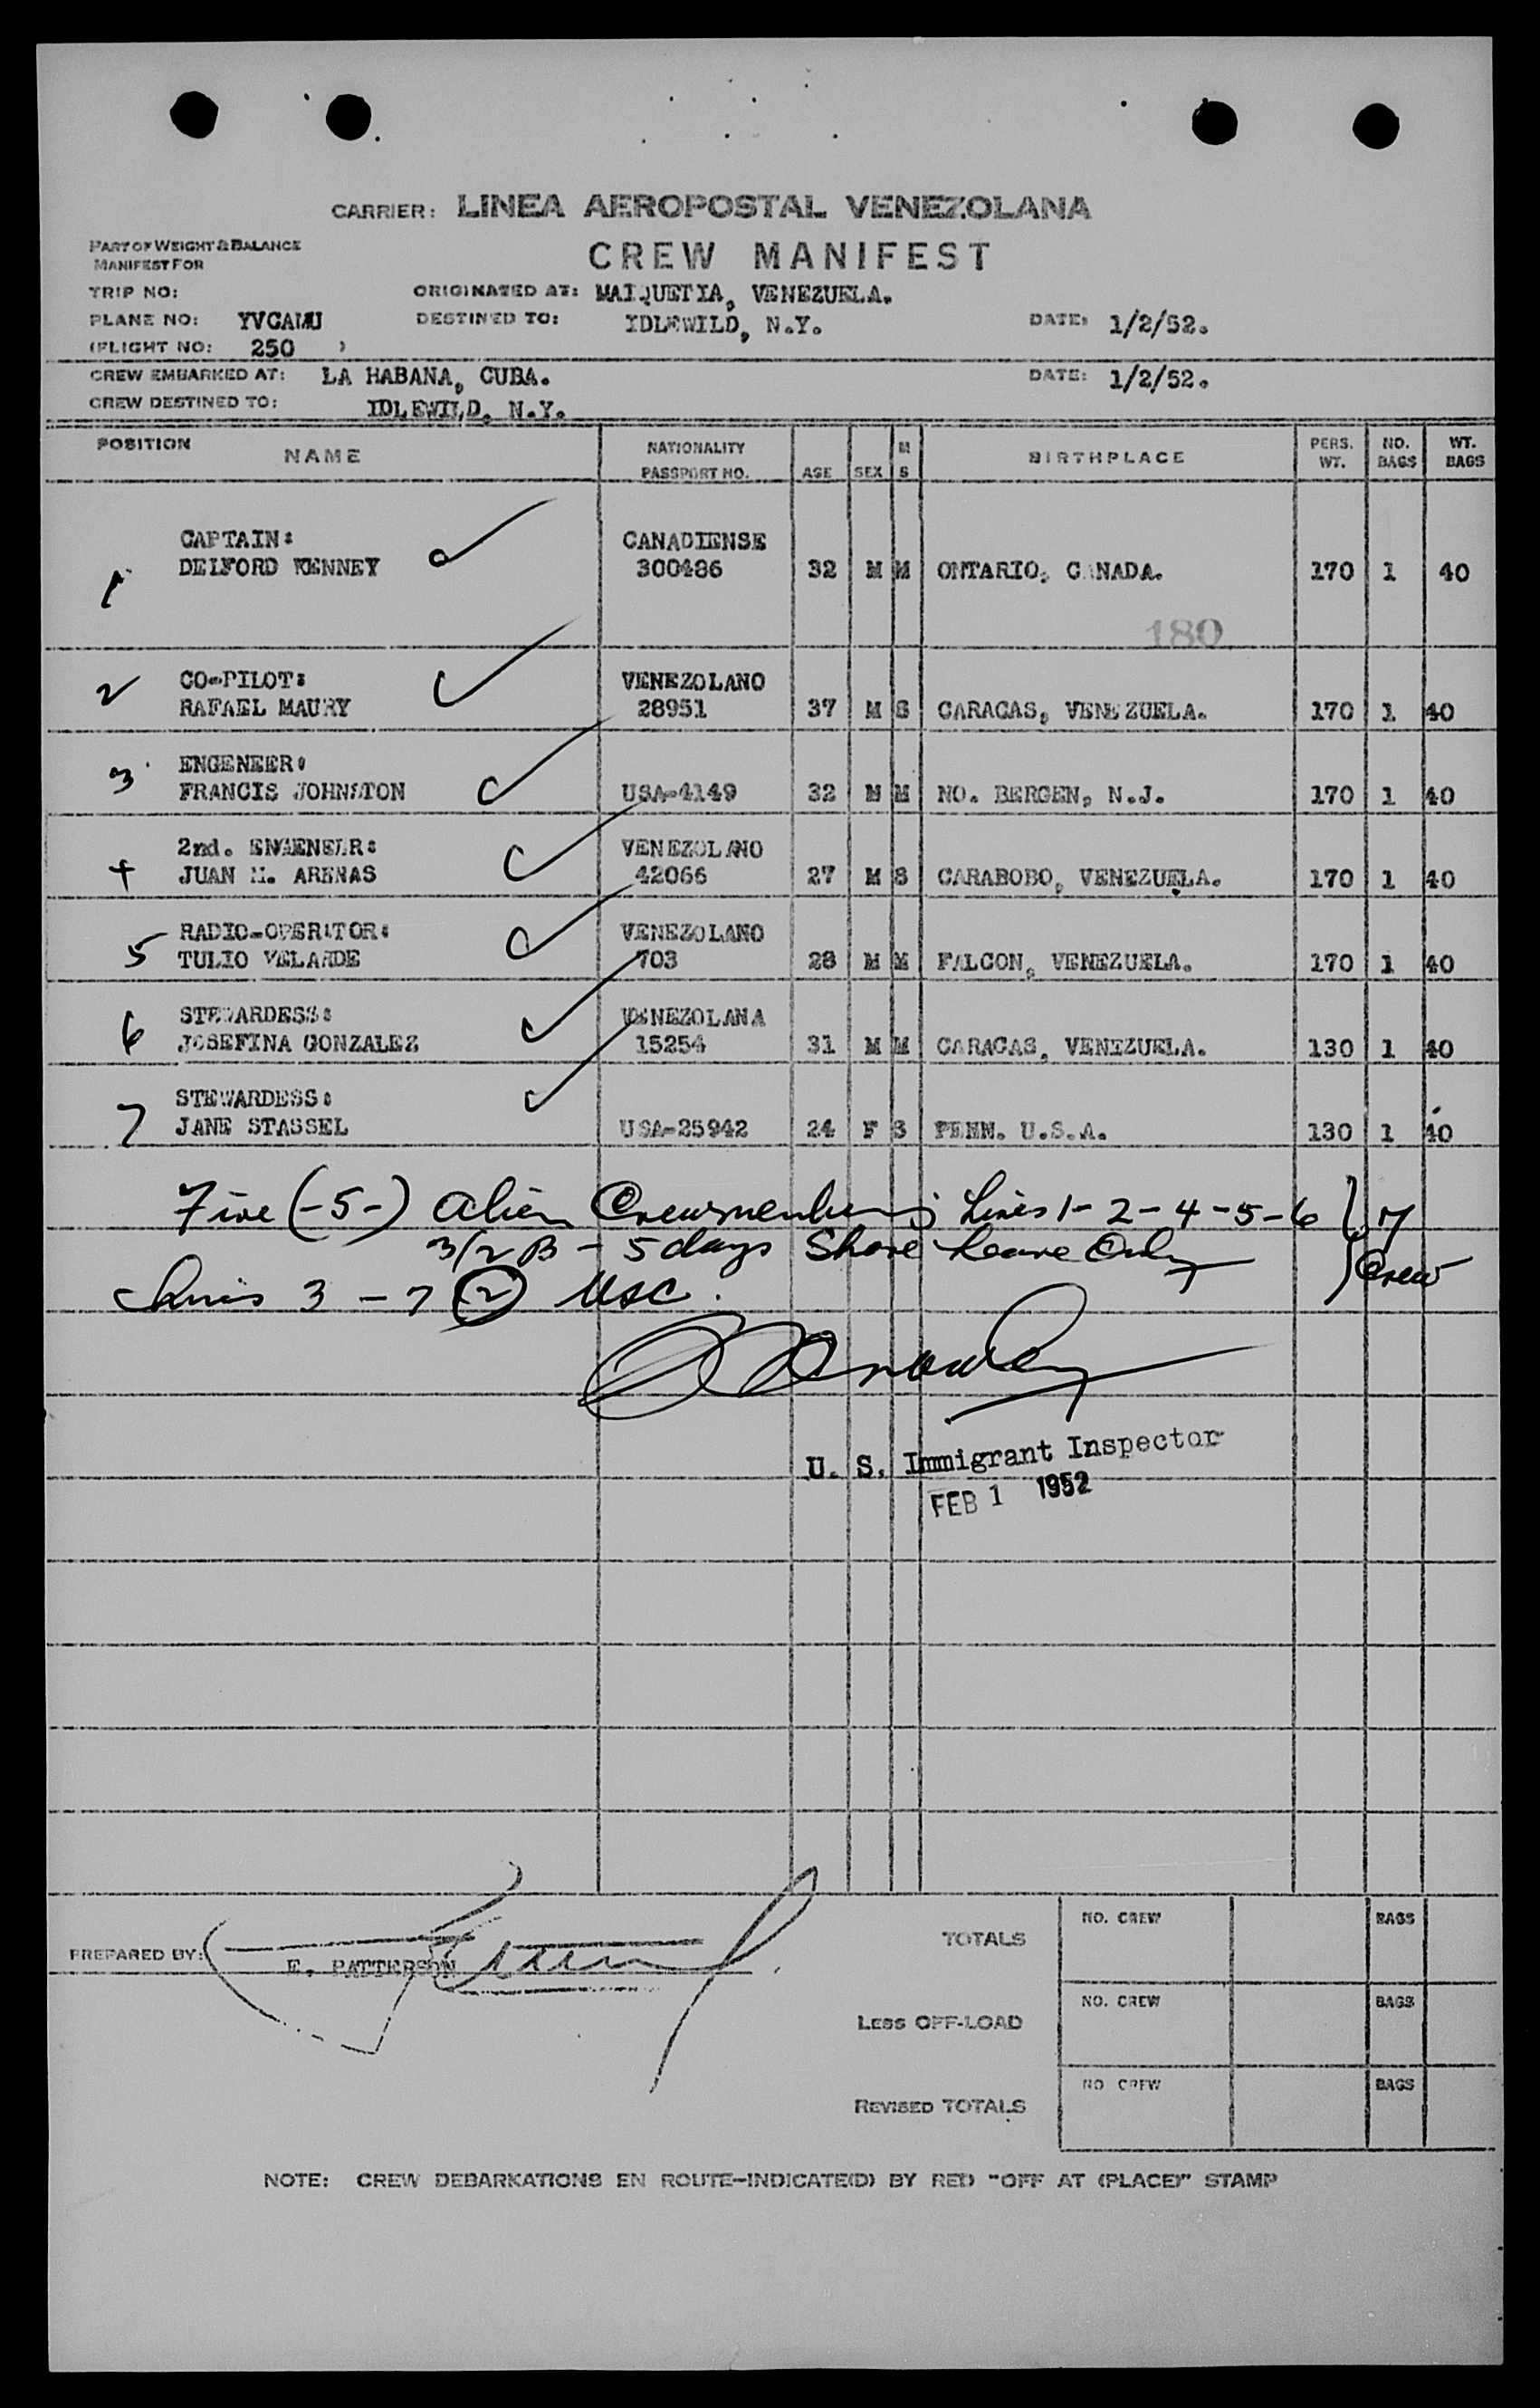 CARRIER: LINEA AEROPOSTAL VENEZOLANA
PART OF WEIGHT & BALANCE
MANIFEST FOR
CREW MANIFEST
TRIP NO:
ORIGINATED AT: MAIQUETIA, VENEZUELA.
PLANE NO: YVCAMU
DESTINED TO: IDLEWILD, N.Y.
DATE: 1/2/52.
(FLIGHT NO: 250 )
CREW EMBARKED AT: LA HABANA, CUBA.
DATE: 1/2/52.
CREW DESTINED TO: IDLEWILD, N.Y.
POSITION NAME NATIONALITY PASSPORT NO. AGE SEX M S BIRTHPLACE PERS. WT. NO. BAGS WT. BAGS
CAPTAIN: CANADIENSE
1 DELFORD KENNEY 300486 32 M M ONTARIO, CANADA. 170 1 40
180
2 CO-PILOT: VENEZOLANO
RAFAEL MAURY 28951 37 M S CARACAS, VENEZUELA. 170 1 40
3 ENGENEER:
FRANCIS JOHNSTON USA-4149 32 M M NO. BERGEN, N.J. 170 1 40
4 2nd. ENGENEER: VENEZOLANO
JUAN M. ARENAS 42066 27 M S CARABOBO, VENEZUELA. 170 1 40
5 RADIO-OPERATOR: VENEZOLANO
TULIO VELARDE 703 28 M M FALCON, VENEZUELA. 170 1 40
6 STEWARDESS: VENEZOLANA
JOSEFINA GONZALEZ 15254 31 M M CARACAS, VENEZUELA. 130 1 40
7 STEWARDESS:
JANE STASSEL USA-25942 24 F S PENN. U.S.A. 130 1 40
Five (-5-) alien Crewmembers; Lines 1-2-4-5-6 } 7
3/2 B - 5 days Shore Leave Only Crew
Lines 3 - 7 (2) USC.
U. S. Immigrant Inspector
FEB 1 1952
PREPARED BY: E. PATTERSON
TOTALS NO. CREW BAGS
LESS OFF-LOAD NO. CREW BAGS
REVISED TOTALS NO CREW BAGS
NOTE: CREW DEBARKATIONS EN ROUTE-INDICATE(D) BY RED "OFF AT (PLACE)" STAMP